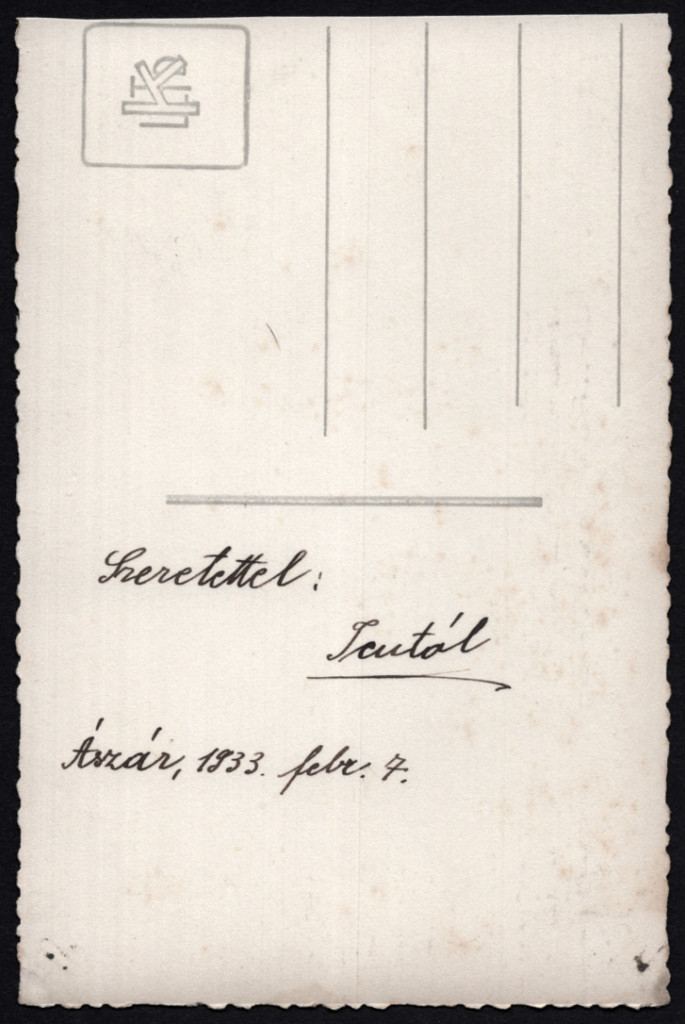 Szeretettel:
Icutól
Ászár, 1933. febr. 7.